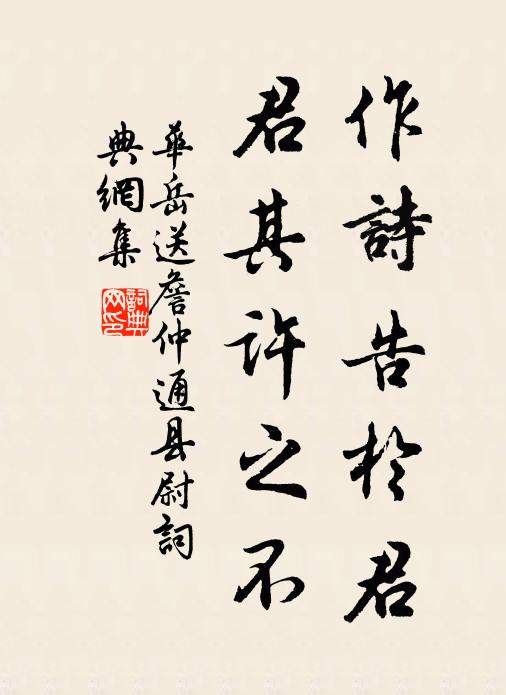 作詩告於君
君其許之不
華岳送詹仲通县尉詞
典網集
詞典
网印